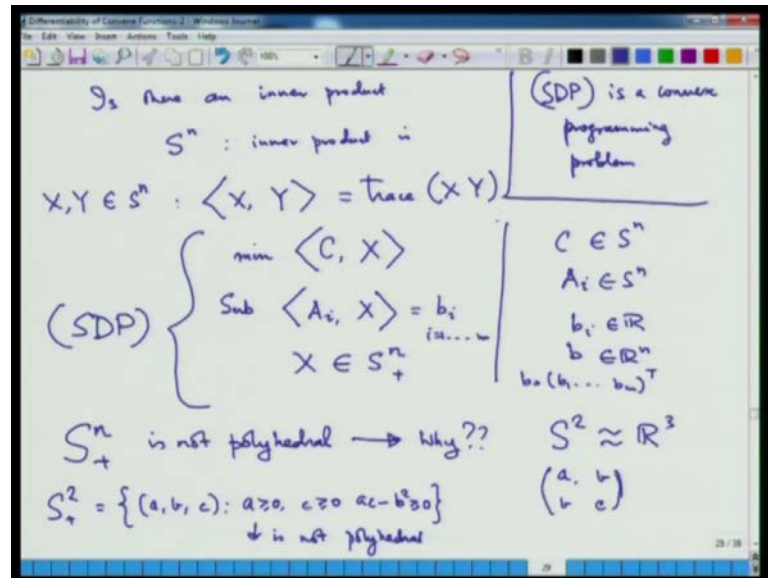 Differentiability of Convene Functions-2 - Windows Journal
File Edit View Insert Actions Tools Help
100%
B I
Is there an inner product
S^n : inner product is
X, Y ∈ S^n : ⟨X, Y⟩ = trace (XY)
(SDP) is a convex
programming
problem
(SDP) { min ⟨C, X⟩
Sub ⟨A_i, X⟩ = b_i
i=1,...m
X ∈ S^n_+
C ∈ S^n
A_i ∈ S^n
b_i ∈ ℝ
b ∈ ℝ^n
b = (b_1 ... b_m)^T
S^n_+ is not polyhedral → Why??
S^2 ≈ ℝ^3
S^2_+ = {(a, b, c): a≥0, c≥0 ac-b^2≥0}
↓ is not polyhedral
(a, b
b c)
29 / 38
29